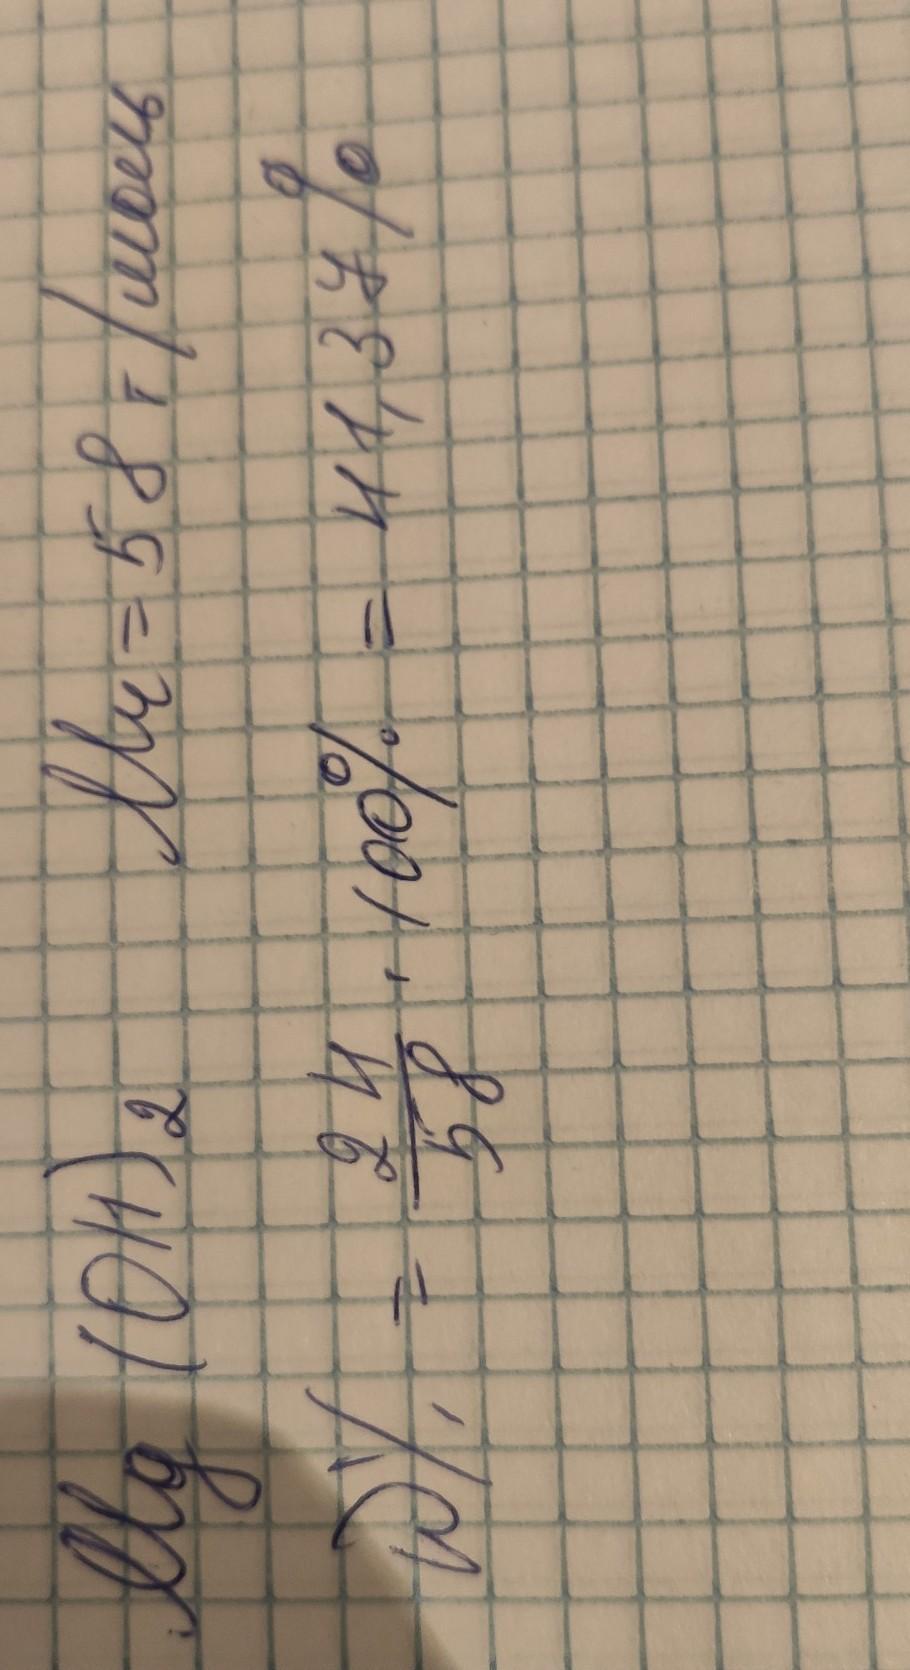 Mg (OH)2 Mr = 58 г/моль
W% = 24/58 · 100% = 41,37%